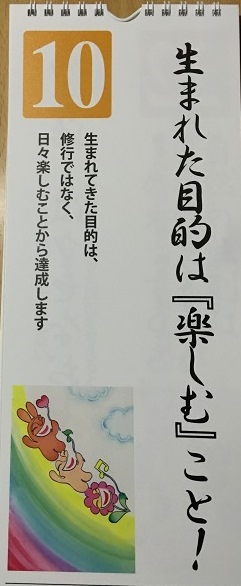 生まれた目的は『楽しむ』こと！
10
生まれてきた目的は、
修行ではなく、
日々楽しむことから達成します